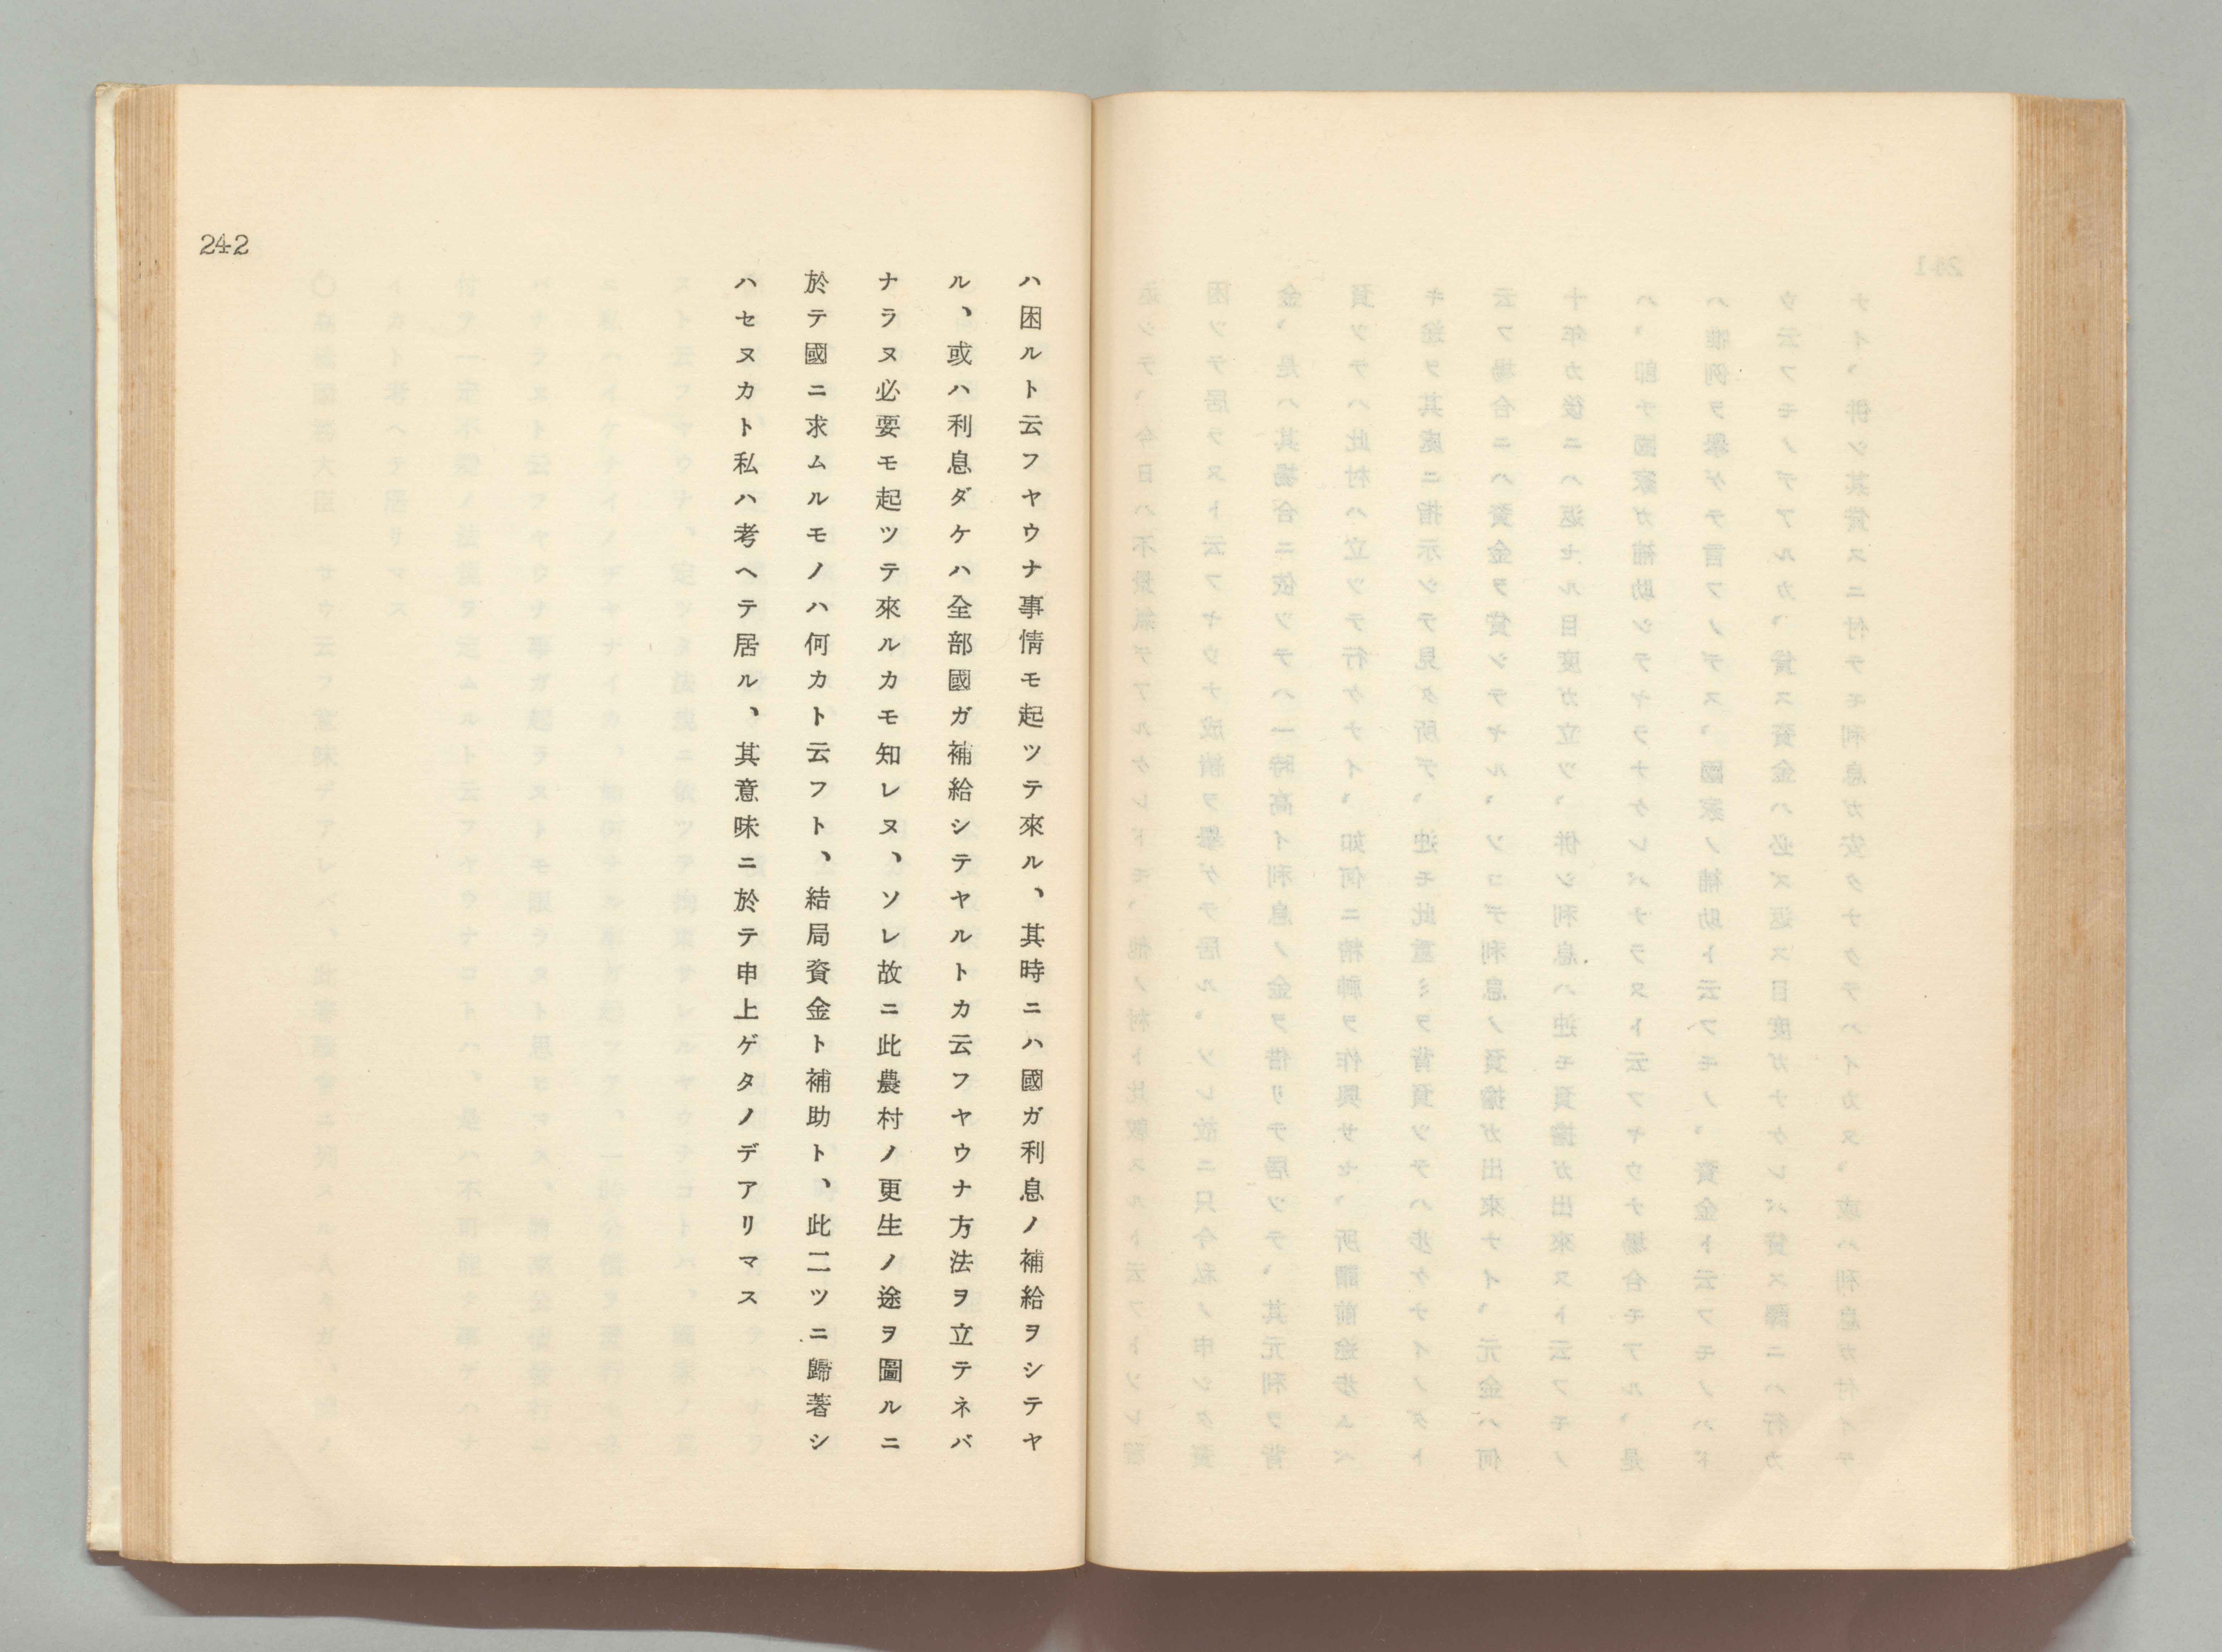 ハ困ルト云フヤウナ事情モ起ツテ來ル、其時ニハ國ガ利息ノ補給ヲシテヤ
ル、或ハ利息ダケハ全部國ガ補給シテヤルトカ云フヤウナ方法ヲ立テネバ
ナラヌ必要モ起ツテ來ルカモ知レヌ、ソレ故ニ此農村ノ更生ノ途ヲ圖ルニ
於テ國ニ求ムルモノハ何カト云フト、結局資金ト補助ト、此二ツニ歸著シ
ハセヌカト私ハ考ヘテ居ル、其意味ニ於テ申上ゲタノデアリマス
242